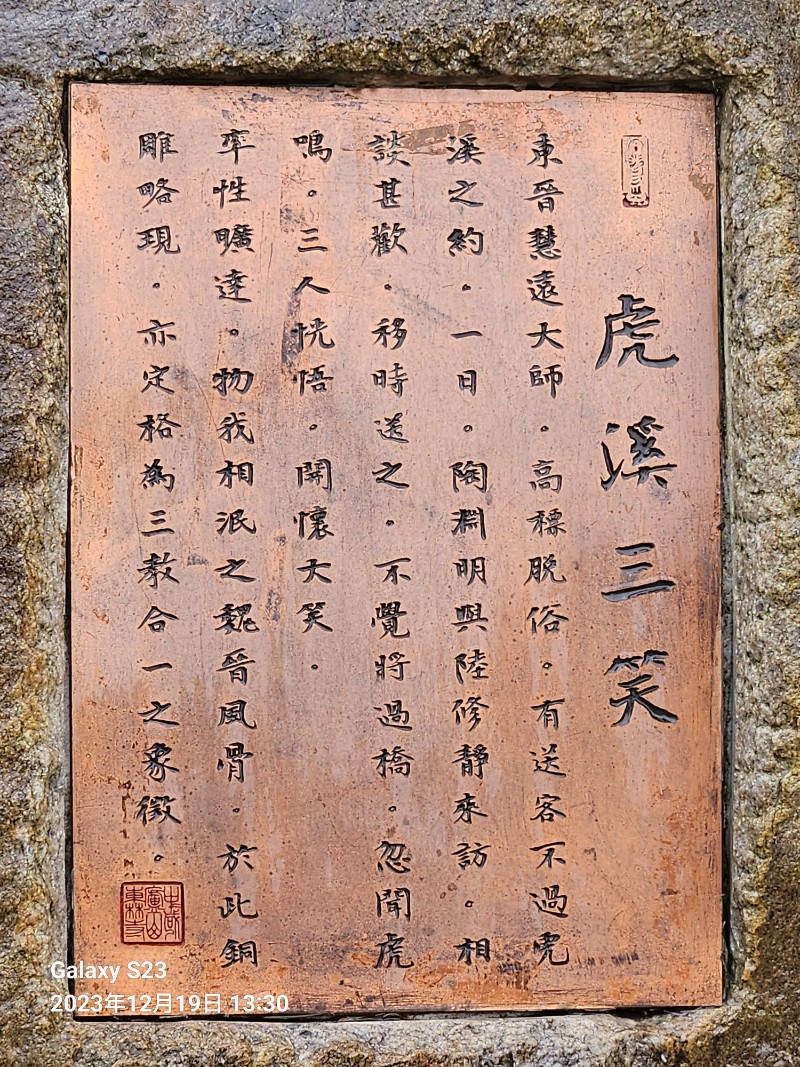 虎溪三笑
東晉慧遠大師。高標脫俗。有送客不過虎
溪之約。一日。陶淵明與陸修靜來訪。相
談甚歡。移時送之。不覺將過橋。忽聞虎
鳴。三人恍悟。開懷大笑。
率性曠達。物我相泯之魏晉風骨。於此銅
雕略現。亦定格為三教合一之象徵。
Galaxy S23
2023年12月19日 13:30